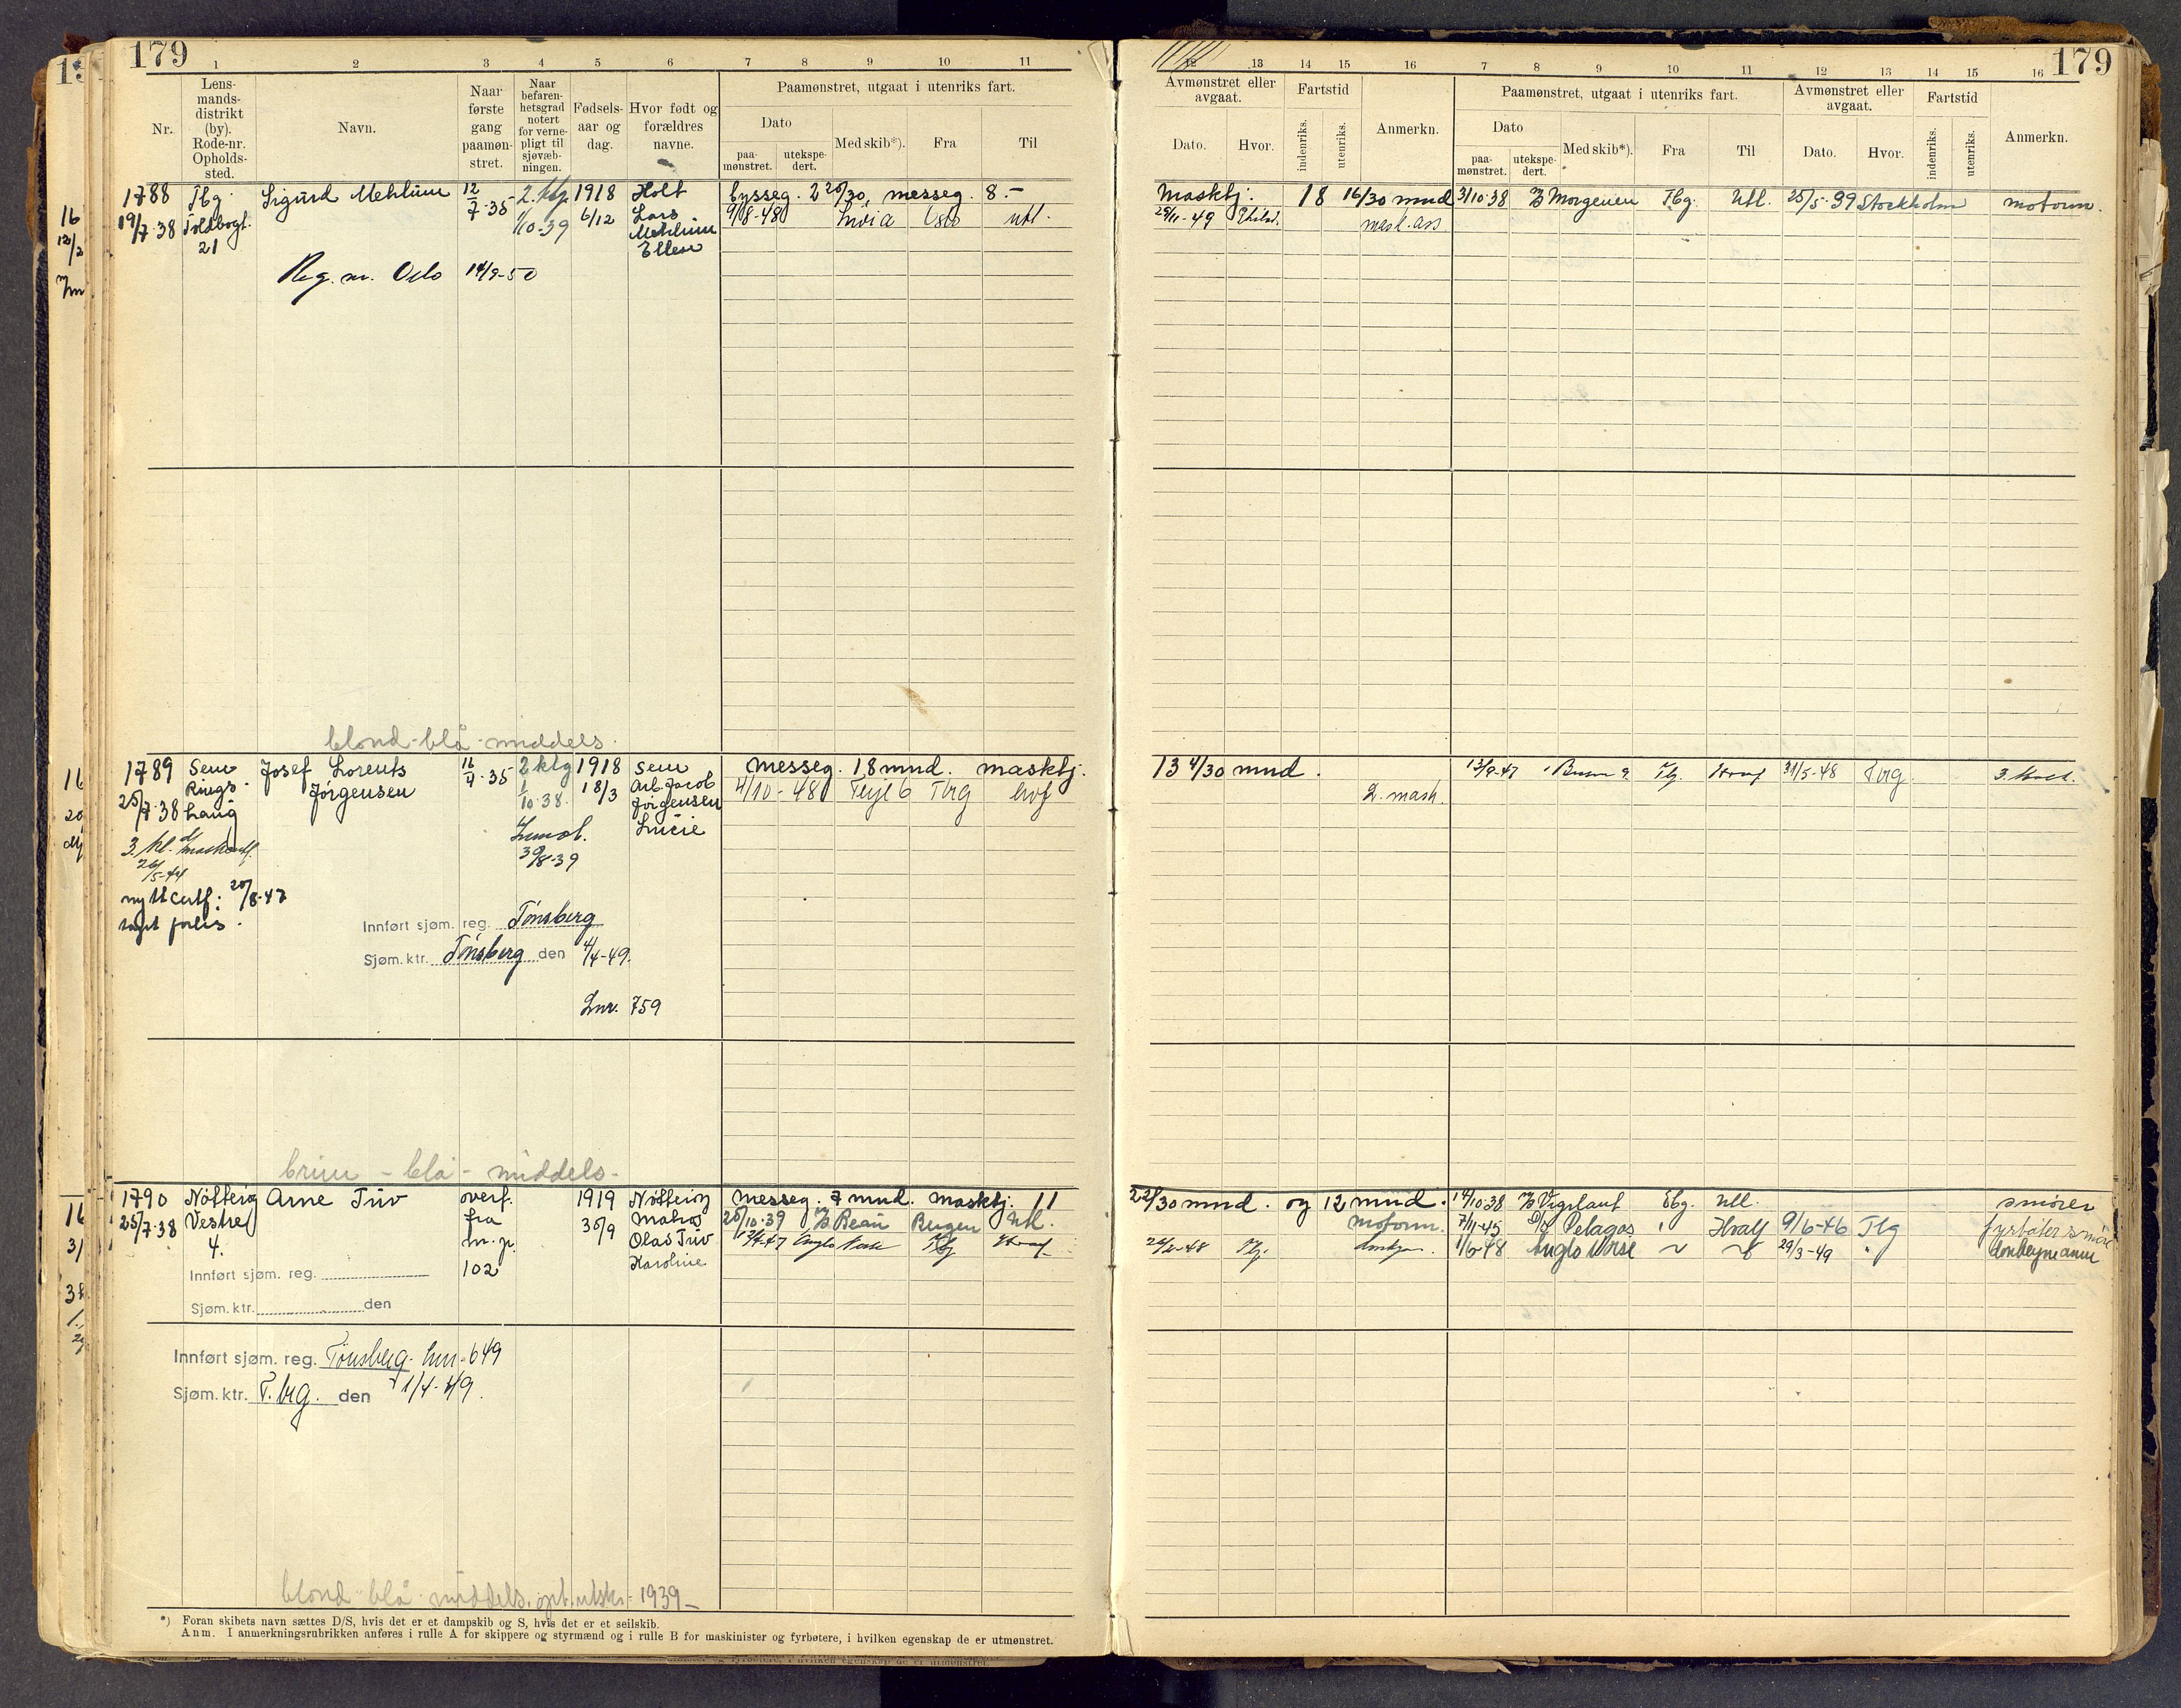 179
1 2 3 4 5 6 7 8 9 10 11
Nr.
Lens-
mands-
distrikt
(by).
Rode-nr.
Opholds-
sted.
Navn.
Naar
første
gang
paamøn-
stret.
Naar
befaren-
hetsgrad
notert
for verne-
pligt til
sjøvæb-
ningen.
Fødsels-
aar og
dag.
Hvor født og
forældres
navne.
Paamønstret, utgaat i utenriks fart.
Dato
paa-
mønstret.
utekspe-
dert.
Med skib*).
Fra
Til
1788 Tbg. Sigurd Mehlum 12/7-35 2. klg. 1918 Holt bysseg. 2 26/30, messeg. 8.-
19/7-38 Toldbogt. 1/10-39 6/12 Lars 9/8-48 Livia Oslo utl.
21 Mehlum
Ellen
Reg. nr. Oslo 14/9-50
blond-blå-middels.
1789 Sem Josef Lorents 16/4-35 2 klg 1918 Sem messeg. 18 mnd. maskbj.
25/7-38 Rings- Jørgensen 1/10-38. 18/3 Arb. Jacob 4/10-48 Terje 6 Tbrg hvf
haug Jørgensen
Lucie
3. kl.
26/5-44 30/8-39
nytt certf: 20/8-47
tapt forlis.
Innført sjøm. reg. Tönsberg
Sjøm. ktr. Tönsberg den 4/4-49.
Lnr. 759
brun - blå - middels-
1790 Nøtterøy Arne Tuv overf. 1919 Nøtterøy messeg. 7 mnd. maskbj. 11
25/7-38 Vestre fra 30/9 Matros 20/10-39 Beau Bergen Utl.
4. Olaf Tuv
102 Karoline
Innført sjøm. reg.
Sjøm. ktr. den
Innført sjøm. reg. Tønsberg. lnr-649
Sjøm. ktr. T.brg. den 1/4-49.
blond blå middels. 1939-
*) Foran skibets navn sættes D/S, hvis det er et dampskib og S, hvis det er et seilskib.
Anm. I anmerkningsrubrikken anføres i rulle A for skippere og styrmænd og i rulle B for maskinister og fyrbøtere, i hvilken egenskap de er utmønstret.
179
12 13 14 15 16 7 8 9 10 11 12 13 14 15 16
Avmønstret eller
avgaat.
Dato. Hvor.
Fartstid
indenriks. utenriks.
Anmerkn.
Paamønstret, utgaat i utenriks fart.
Dato
paa-
mønstret.
utekspe-
dert.
Med skib*).
Fra
Til
Avmønstret eller
avgaat.
Dato. Hvor.
Fartstid
indenriks. utenriks.
Anmerkn.
maskbj. 18 16/30 mnd 31/10-38 Morgenen Tbg. Utl. 25/5-39 Stockholm motorm.
mask. ass
13 4/30 mnd. 13/9-47 Tbg. 31/5-48 Tbrg 3. Mask.
2. mask.
22/30 mnd. og 12 mnd. 14/10-38 Vigilant Utl. smører
motorm. 7/11-45 Pelagos Hvalf 9/6-46 Tbg
1/6-48 Anglo Norse 29/3-49 donkeymann